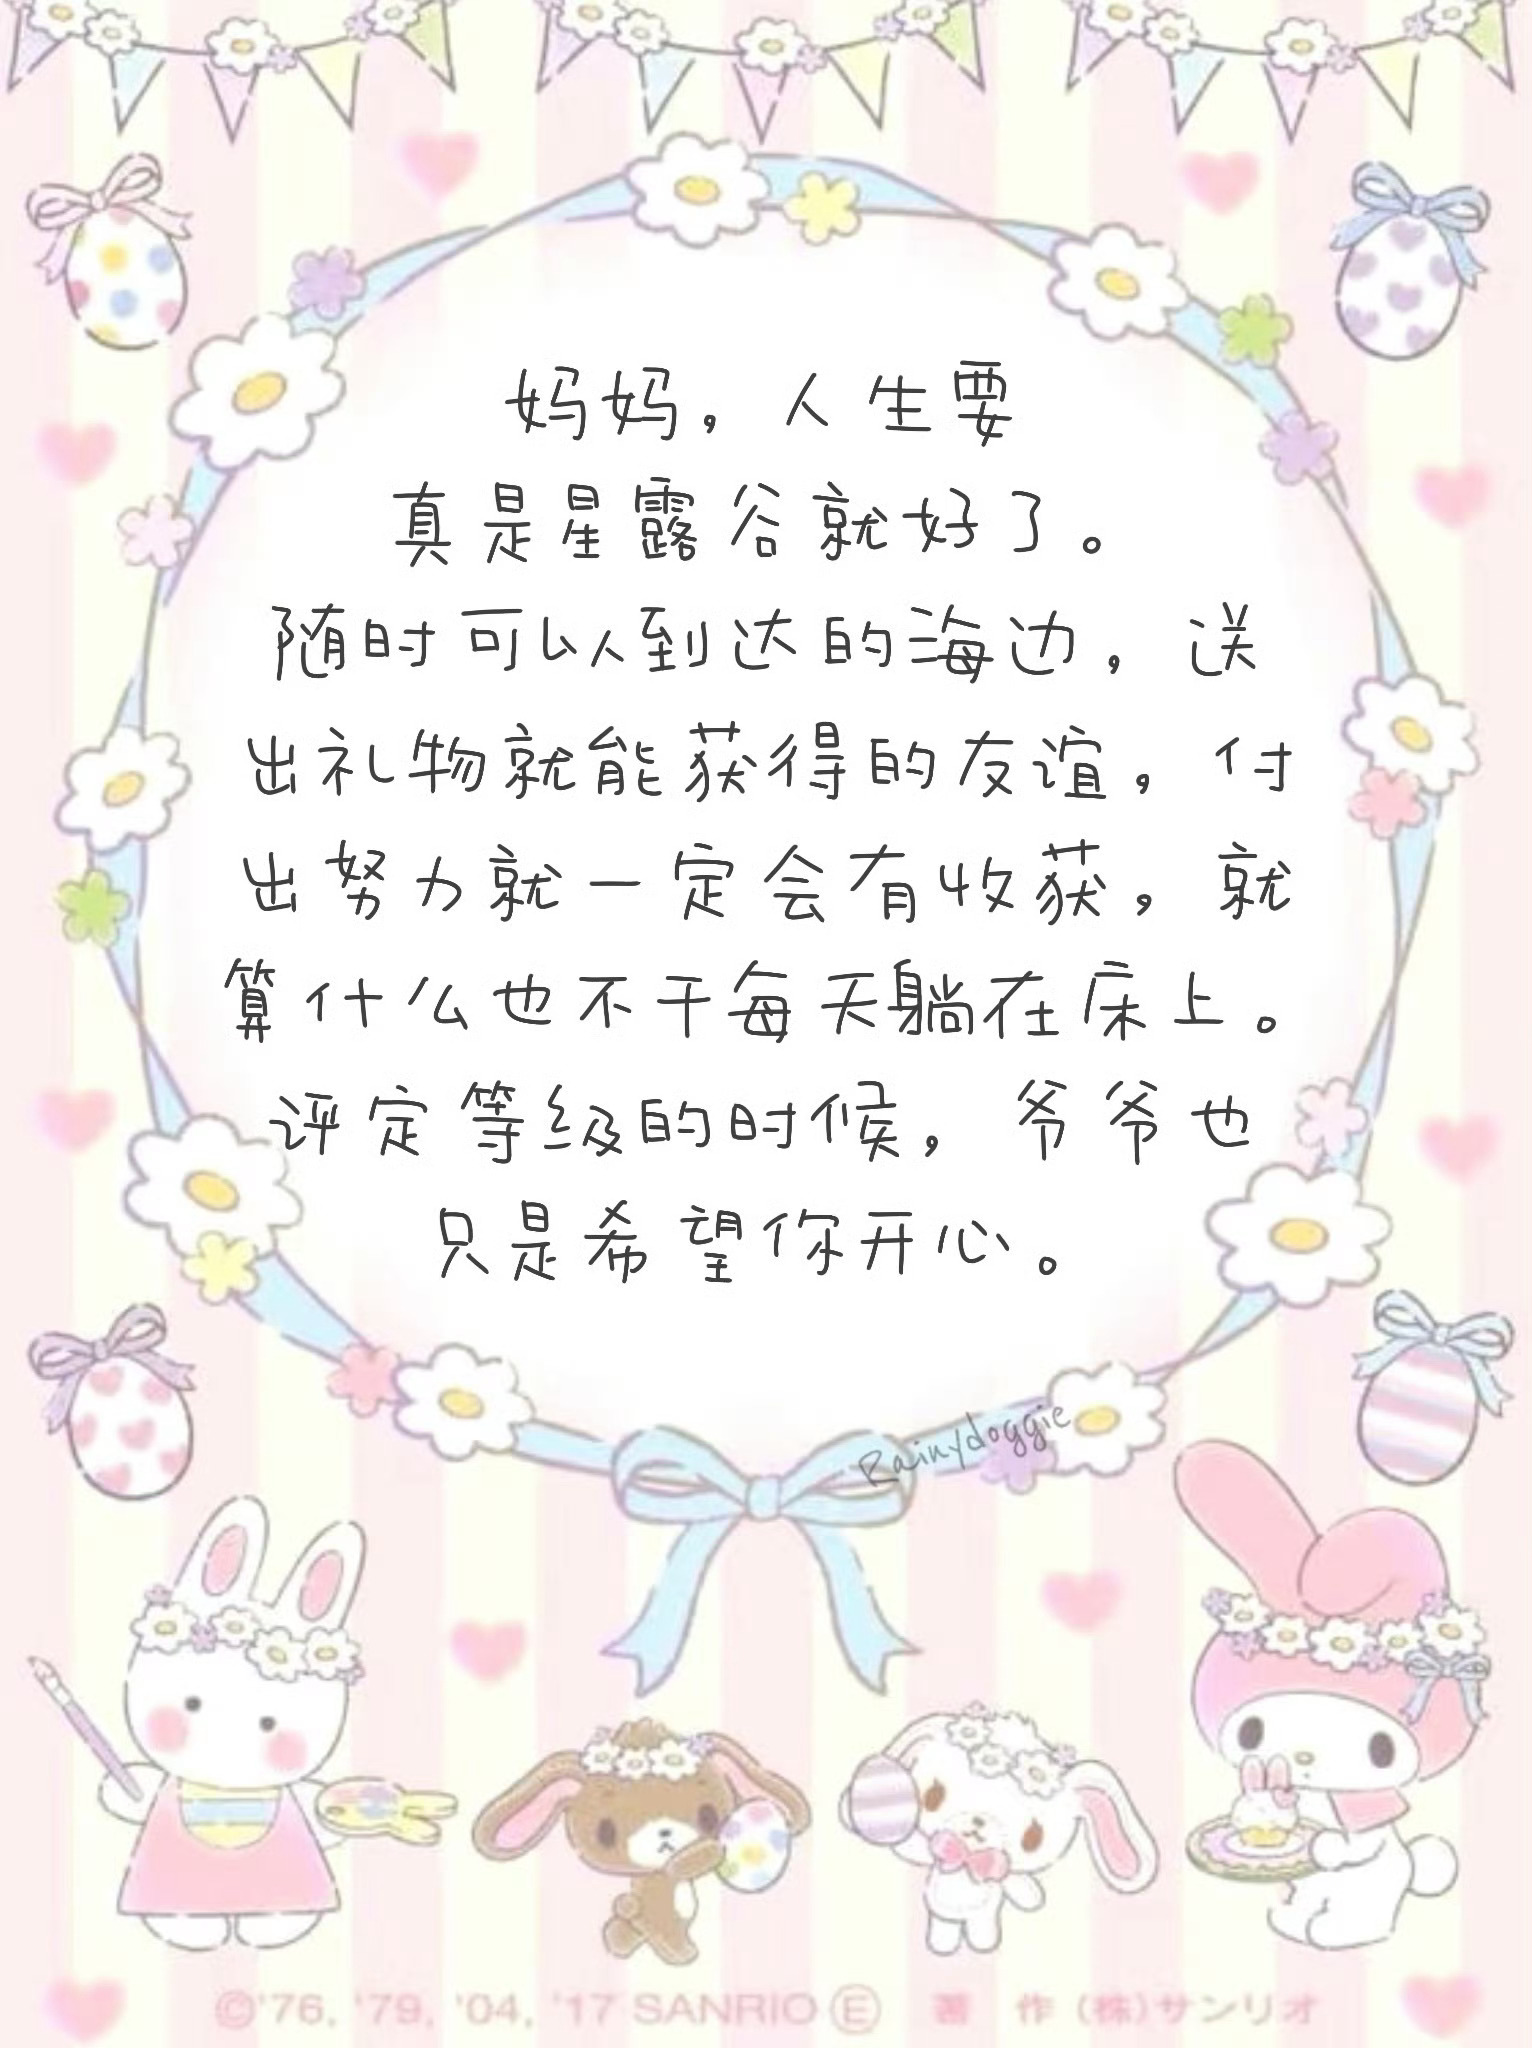 妈妈，人生要
真是星露谷就好了。
随时可以到达的海边，送
出礼物就能获得的友谊，付
出努力就一定会有收获，就
算什么也不干每天躺在床上。
评定等级的时候，爷爷也
只是希望你开心。
Rainydoggie
©'76, '79, '04, '17 SANRIO Ⓔ 著 作 (株)サンリオ